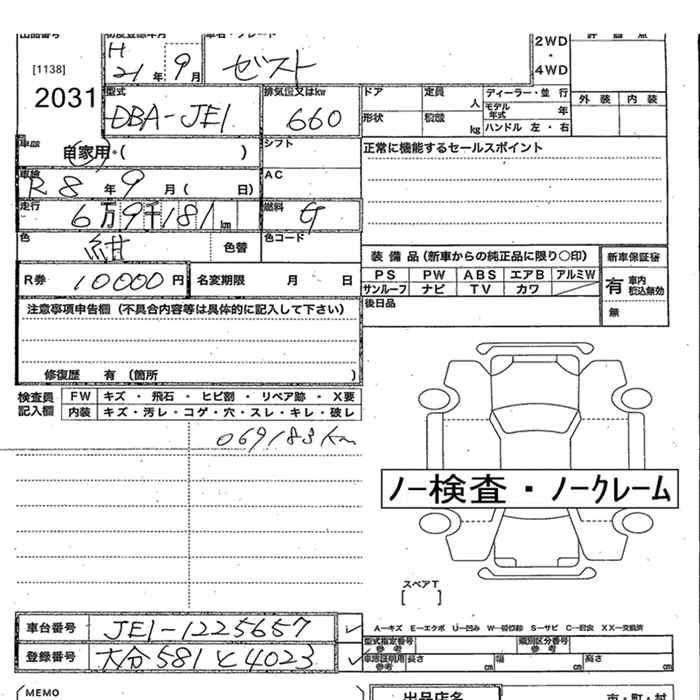 出品番号 初度登録年月 車名・グレード
[1138]
2031
H
21年 9月
ゼスト
2WD
・
4WD
評価点
外装 内装
型式
DBA-JE1
排気量又はkw
660
ドア 定員 人
形状 積載 kg
ディーラー・並行
モデル年式 年
ハンドル 左・右
車歴 自家用・( )
シフト
正常に機能するセールスポイント
車検
R8年9月( 日)
AC
走行
6万9千181km
燃料 G
色 紺 色替
色コード
R券 10000円 名変期限 月 日
装備品(新車からの純正品に限り○印)
PS PW ABS エアB アルミW
サンルーフ ナビ TV カワ
後日品
新車保証書
有 車内 税込無効
無
注意事項申告欄(不具合内容等は具体的に記入して下さい)
修復歴 有(箇所 )
検査員記入欄
FW キズ・飛石・ヒビ割・リペア跡・X要
内装 キズ・汚レ・コゲ・穴・スレ・キレ・破レ
069183km
ノー検査・ノークレーム
スペアT
[ ]
車台番号 JE1-1225657
登録番号 大分581と4023
A―キズ E―エクボ U―凹み S―サビ XX―交換済
型式指定番号 参考 類別区分番号 参考
長さ cm 幅 cm 高さ cm
MEMO
出品店名
市・町・村